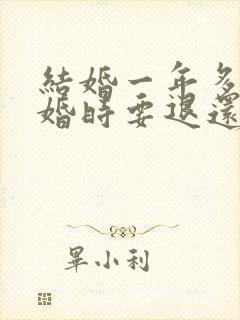 結婚一年多
婚時要退還
畢小利